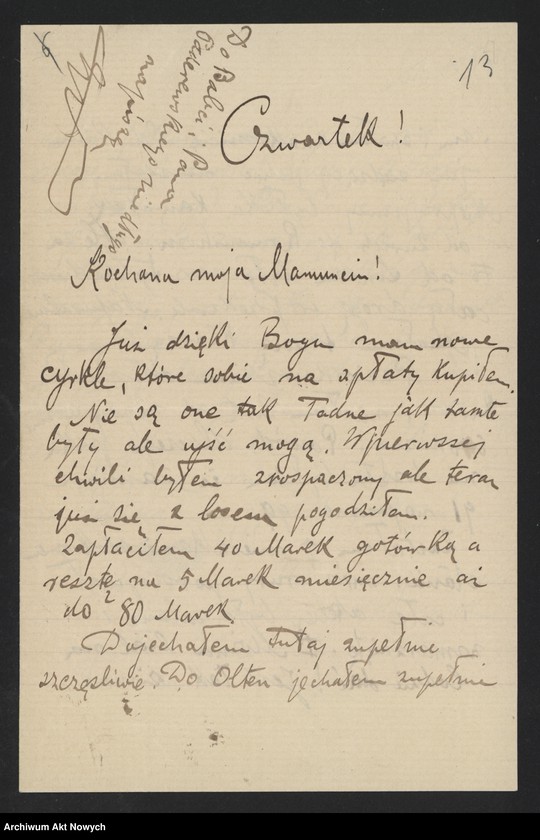 13
Do Babci i Pana
Paderewskiego niedługo
napiszę
Czwartek!
Kochana moja Mamunciu!
Już dzięki Bogu mam nowe
cyrkle, które sobie na spłaty kupiłem.
Nie są one tak ładne jak tamte
były ale ujść mogą. W pierwszej
chwili byłem zrospaczony ale teraz
już się z losem pogodziłam.
Zapłaciłem 40 Marek gotówką a
resztę na 5 Marek miesięcznie aż
do 80 Marek.
Dojechałem tutaj zupełnie
szczęśliwie. Do Olten jechałem zupełnie
Archiwum Akt Nowych